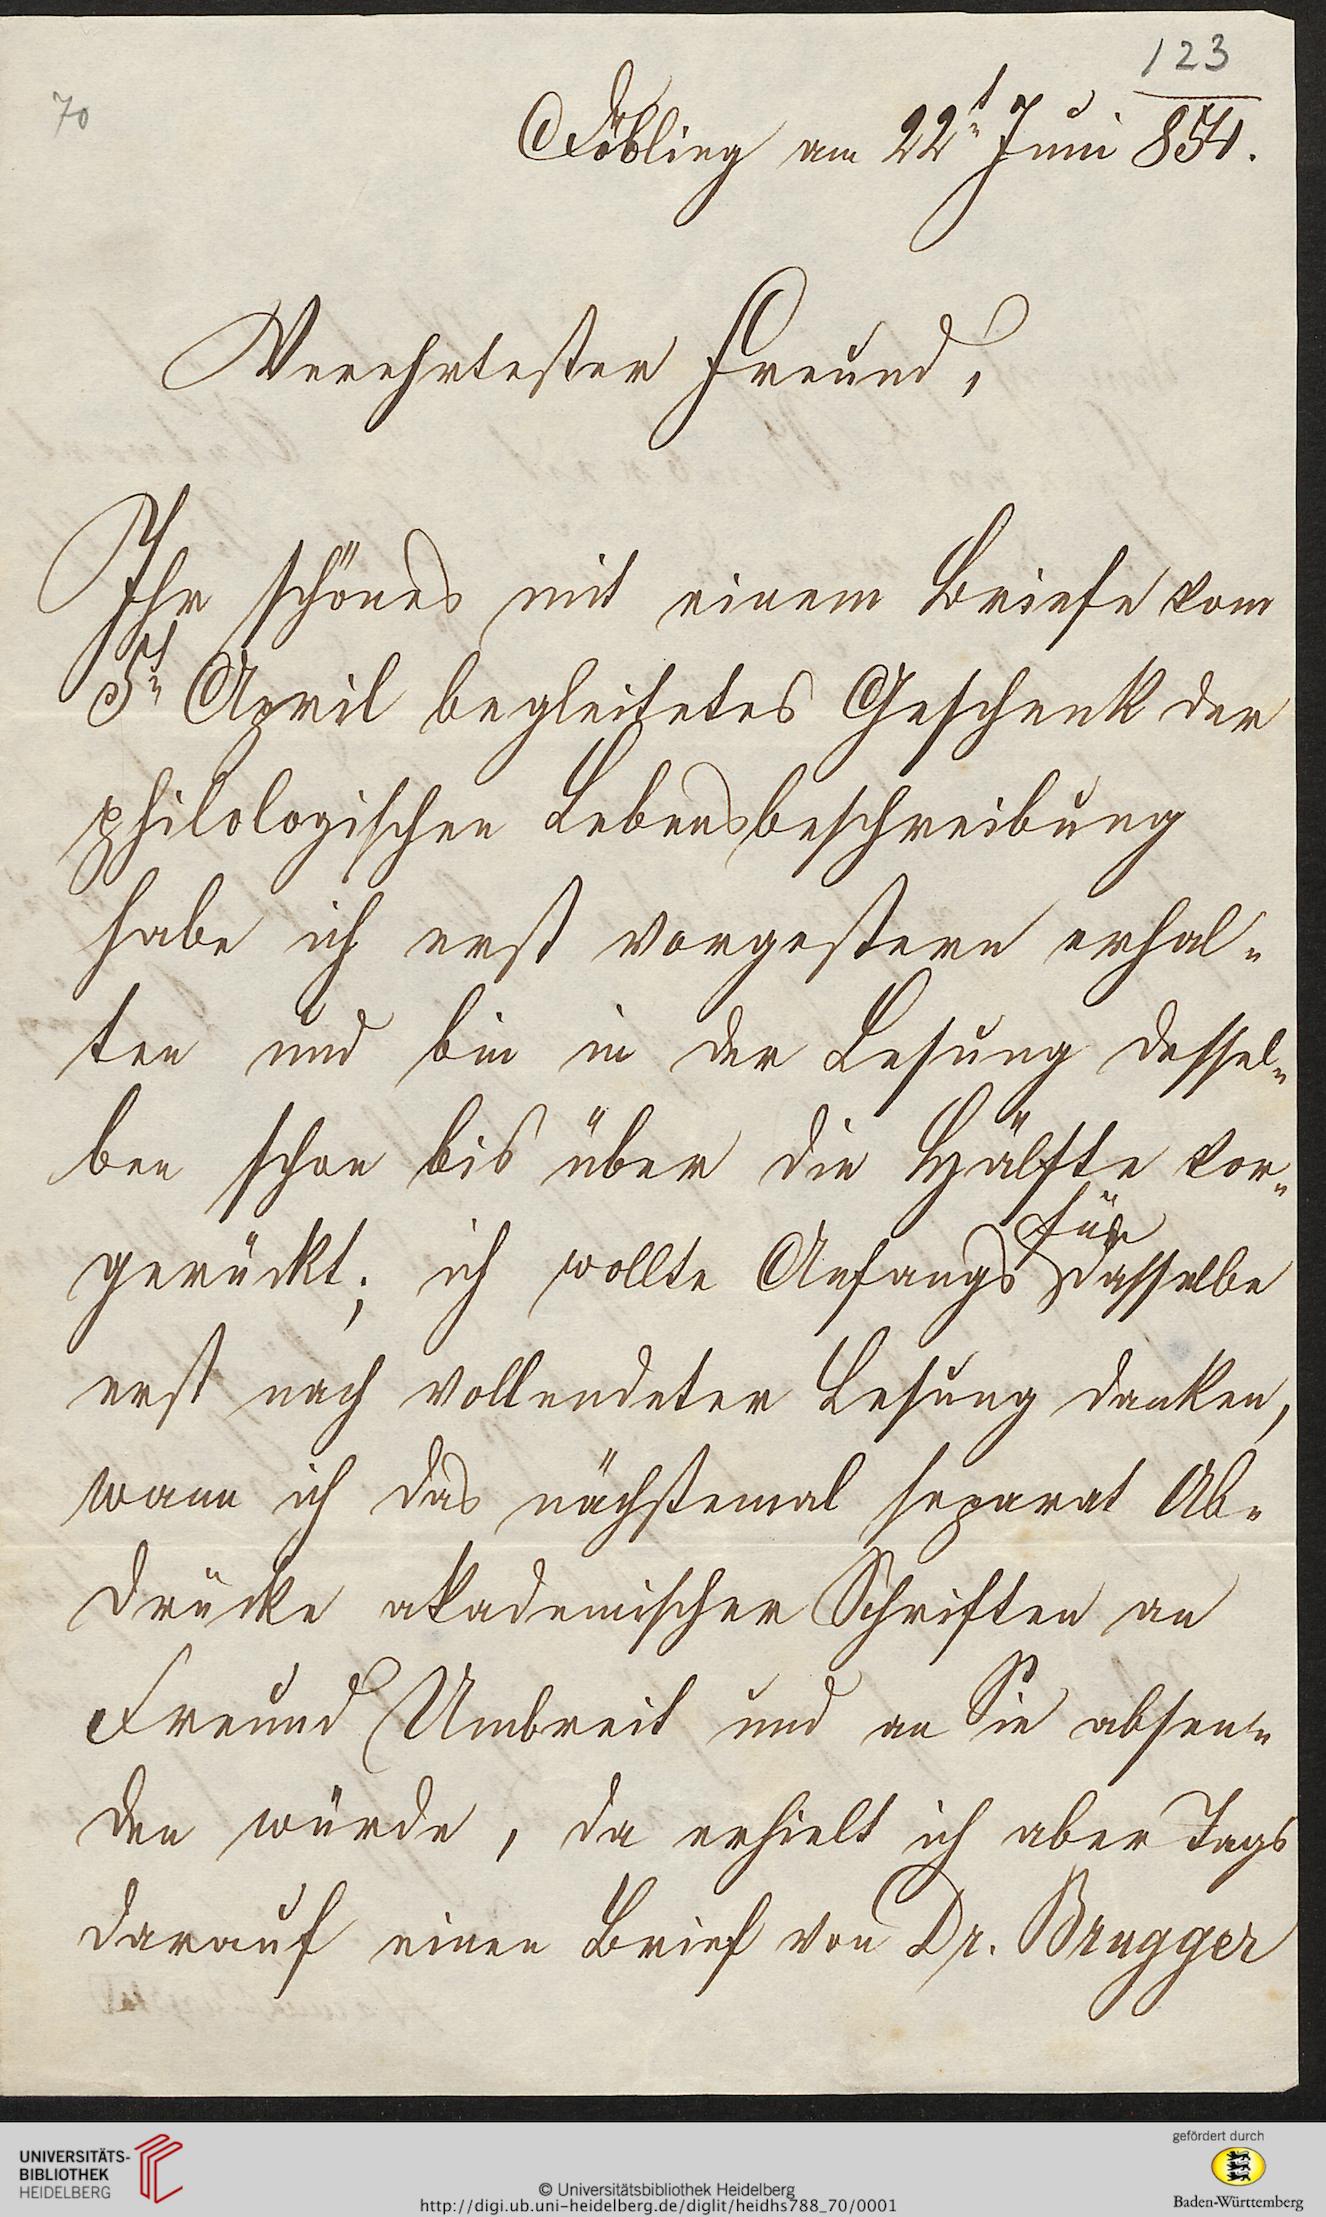 123
70
Döbling am 22t Juni 854.
Verehrtester Freund,
Ihr schönes mit einem Briefe vom
5t April begleitetes Geschenk der
philologischen Lebensbeschreibung
habe ich erst vorgestern erhal-
ten und bin in der Lesung dessel-
ben schon bis über die Hälfte vor-
gerückt; ich wollte Anfangs für dasselbe
erst nach vollendeter Lesung danken,
wann ich das nächstemal separat Ab-
drücke akademischer Schriften an
Freund Umbreit und an Sie absen-
den würde, da erhielt ich aber Tags
darauf einen Brief von Dr. Brugger
UNIVERSITÄTS-
BIBLIOTHEK
HEIDELBERG
© Universitätsbibliothek Heidelberg
http://digi.ub.uni-heidelberg.de/diglit/heidhs788_70/0001
gefördert durch
Baden-Württemberg